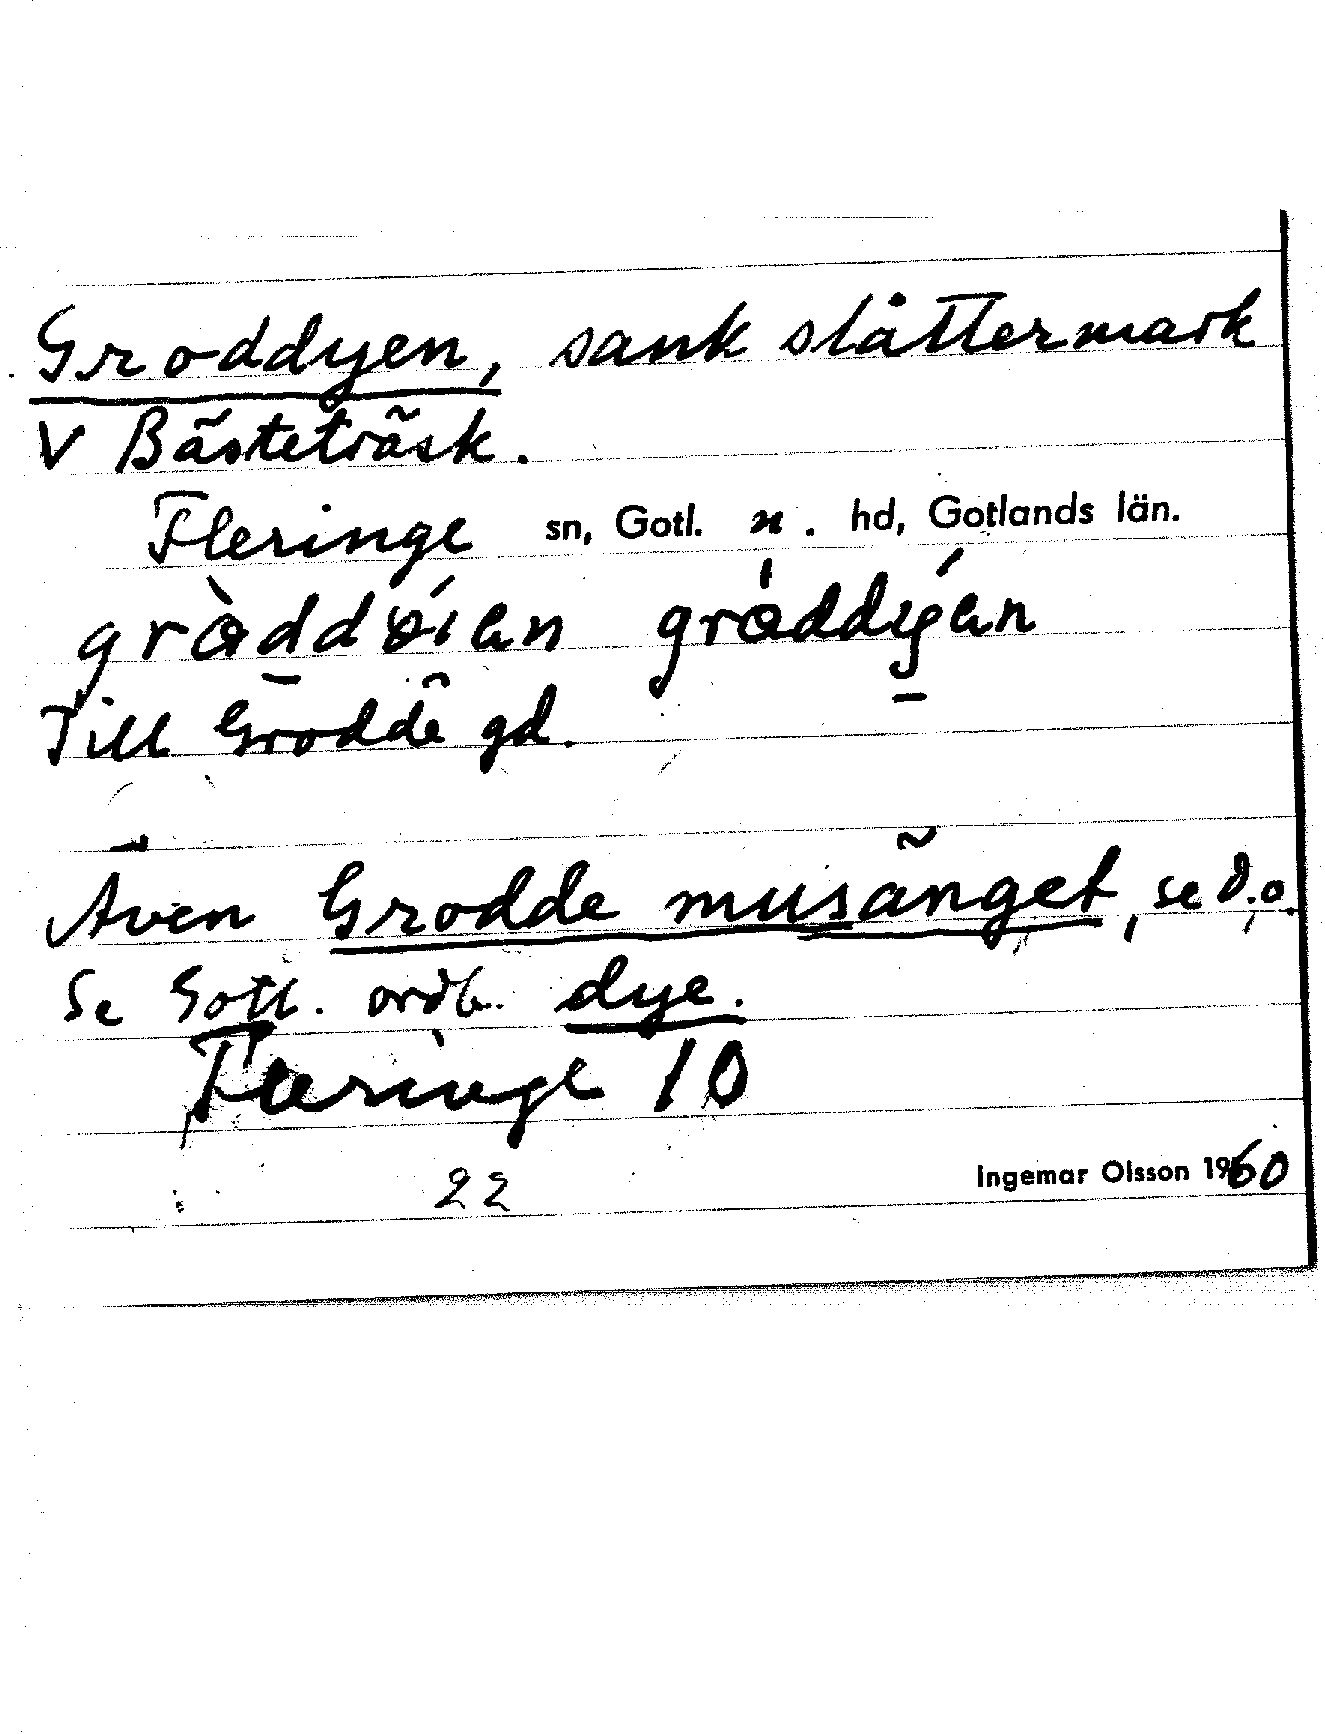 Groddyen, sank slåttermark
V Bästeträsk.
Fleringe sn, Gotl. n. hd, Gotlands län.
Till Grodde gd.
Även Grodde musänget, se d.o.
Se Gotl. ordb. dye.
Fleringe 10
22
Ingemar Olsson 1960